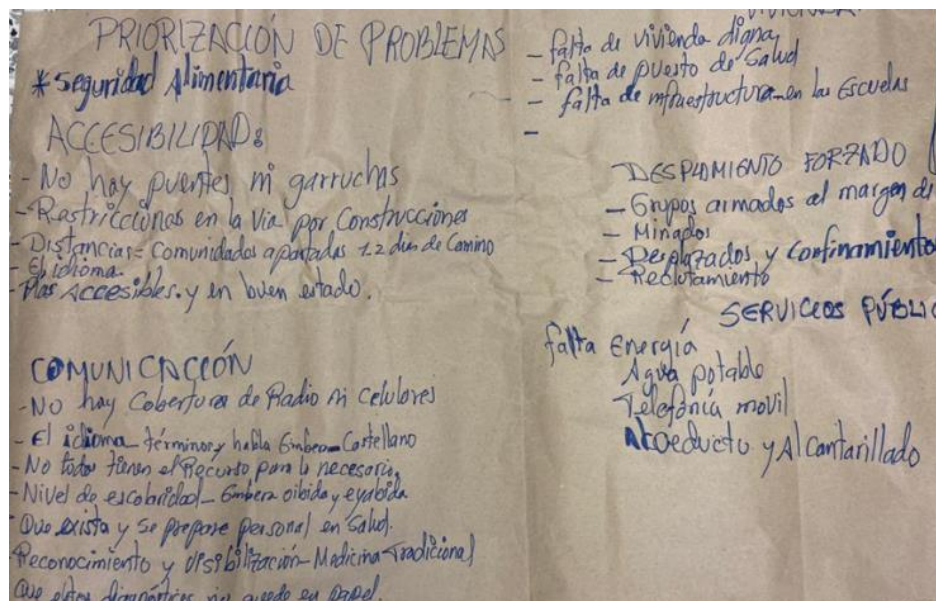 PRIORIZACIÓN DE PROBLEMAS
* Seguridad Alimentaria
ACCESIBILIDAD:
- No hay puentes ni garruchas
- Rastricciones en la Via por Construcciones
- Distancias = Comunidades apartadas 1.2 dias de Camino
- El idioma
- Mas Accesibles. y en buen estado.
COMUNICACCIÓN
- No hay Cobertura de Radio ni Celulares
- El idioma - términos y habla Embera - Castellano
- No todos tienen el Recurso para lo necesario,
- Nivel de escolaridad - Embera oibida y eyabida
- Que exista y se prepare personal en Salud.
Reconocimiento y visibilización - Medicina Tradicional
Que estos diagnósticos no quede en papel.
- falta de vivienda digna
- falta de puesto de Salud
- falta de infraestructura en las Escuelas
-
FORZADO
- Grupos armados al margen de
- Minados
- Desplazados y confinamiento
- Reclutamiento
SERVICIOS
falta Energía
Agua potable
Telefonía movil
Acoeducto y Alcantarillado